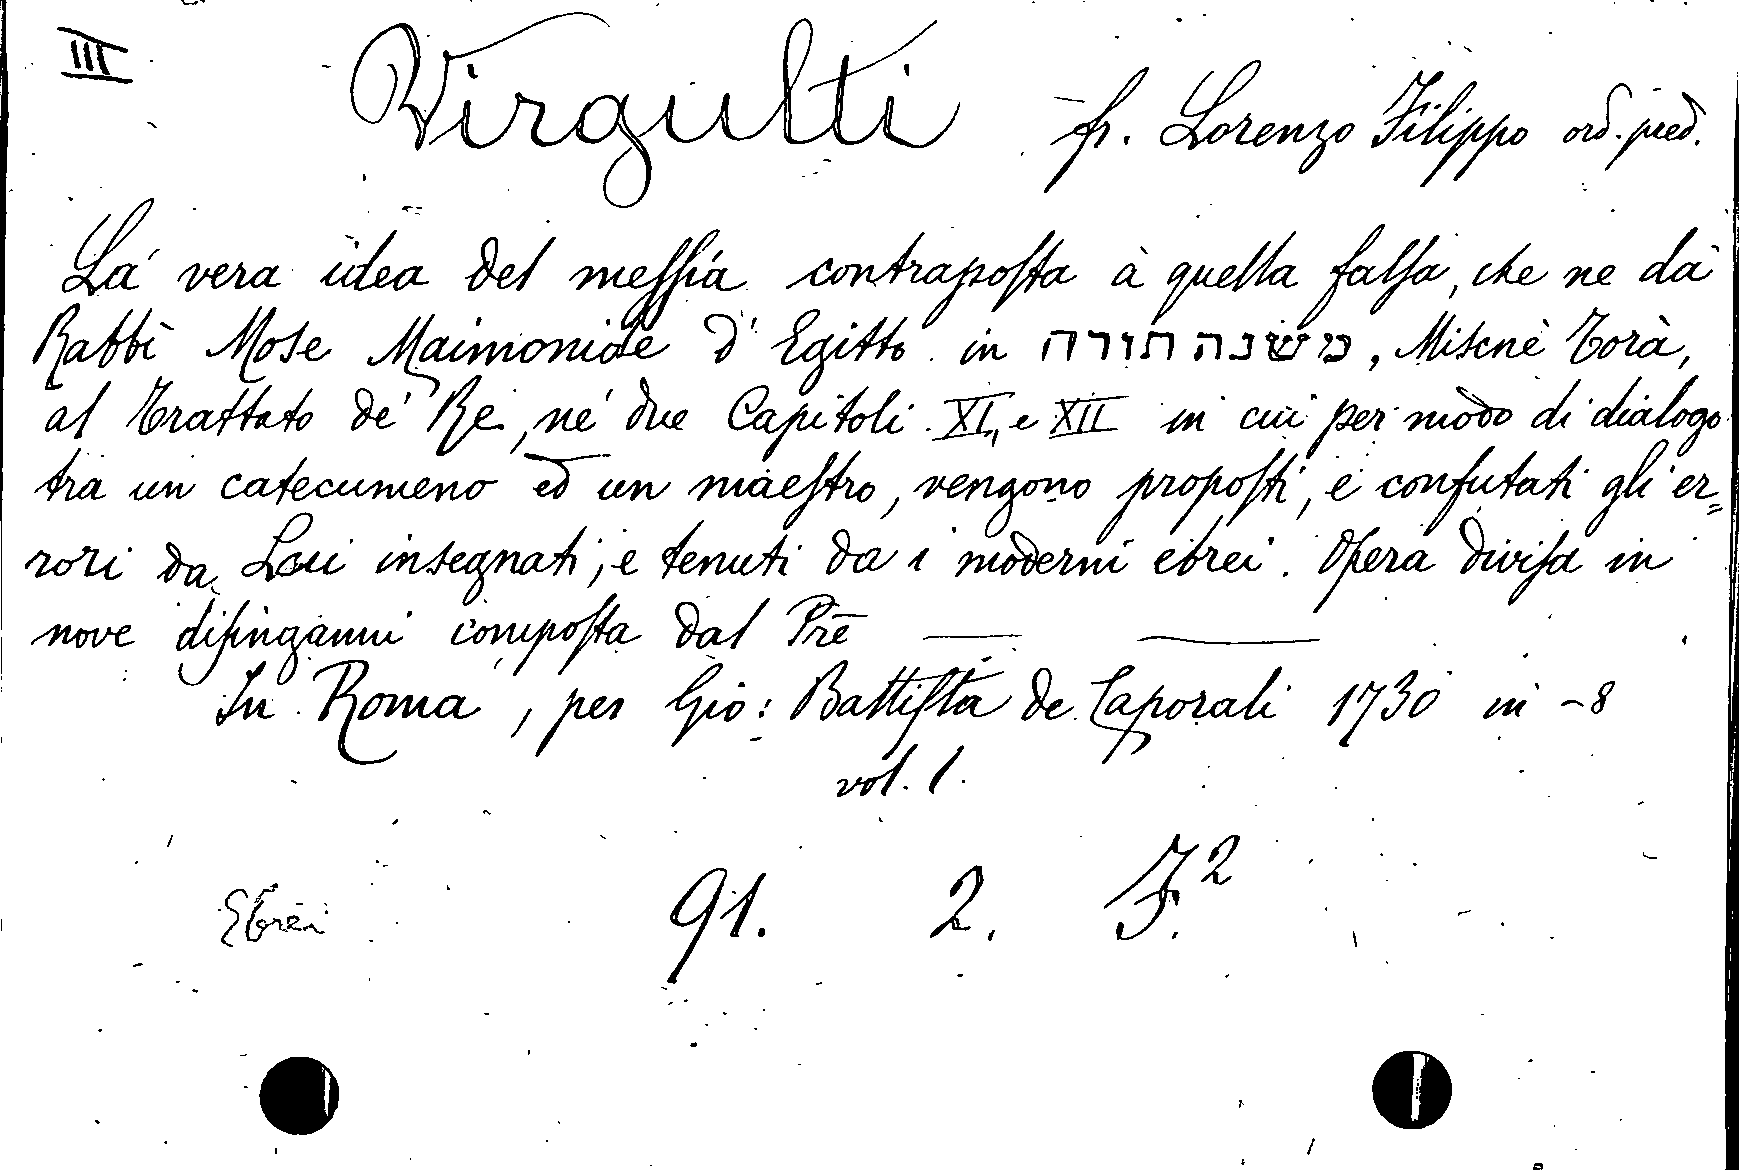 III
Virgulti fr. Lorenzo Filippo ord. pred.
La vera idea del messia contraposta à quella falsa, che ne dà
Rabbi Mose Maimonide d'Egitto in משנה תורה, Miscnè Torà,
al Trattato de' Re, ne' due Capitoli XI, e XII in cui per modo di dialogo
tra un catecumeno ed un maestro, vengono proposti, e confutati gli er=
rori da Lui insegnati, e tenuti da i moderni ebrei. Opera divisa in
nove disinganni composta dal Pre — —
In Roma, per Gio: Battista de Caporali 1730 in -8
vol. 1.
Ebrei 91. 2. F.²